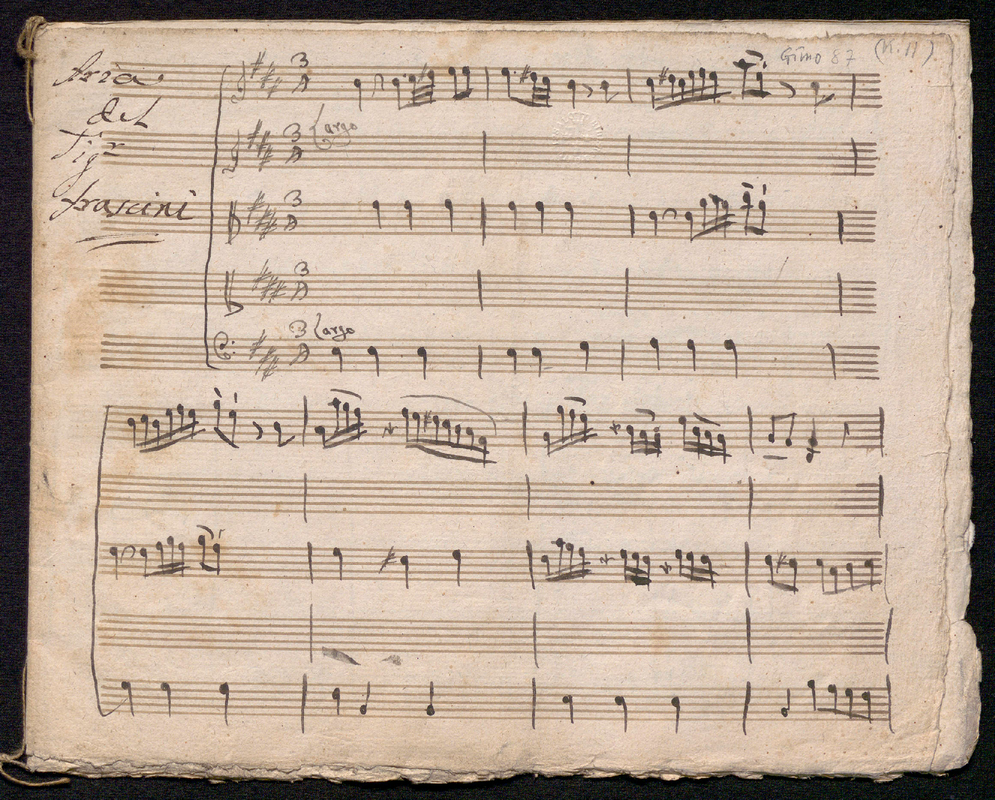 Aria
del
Sigr
frascini
Gimo 87
Largo
Largo